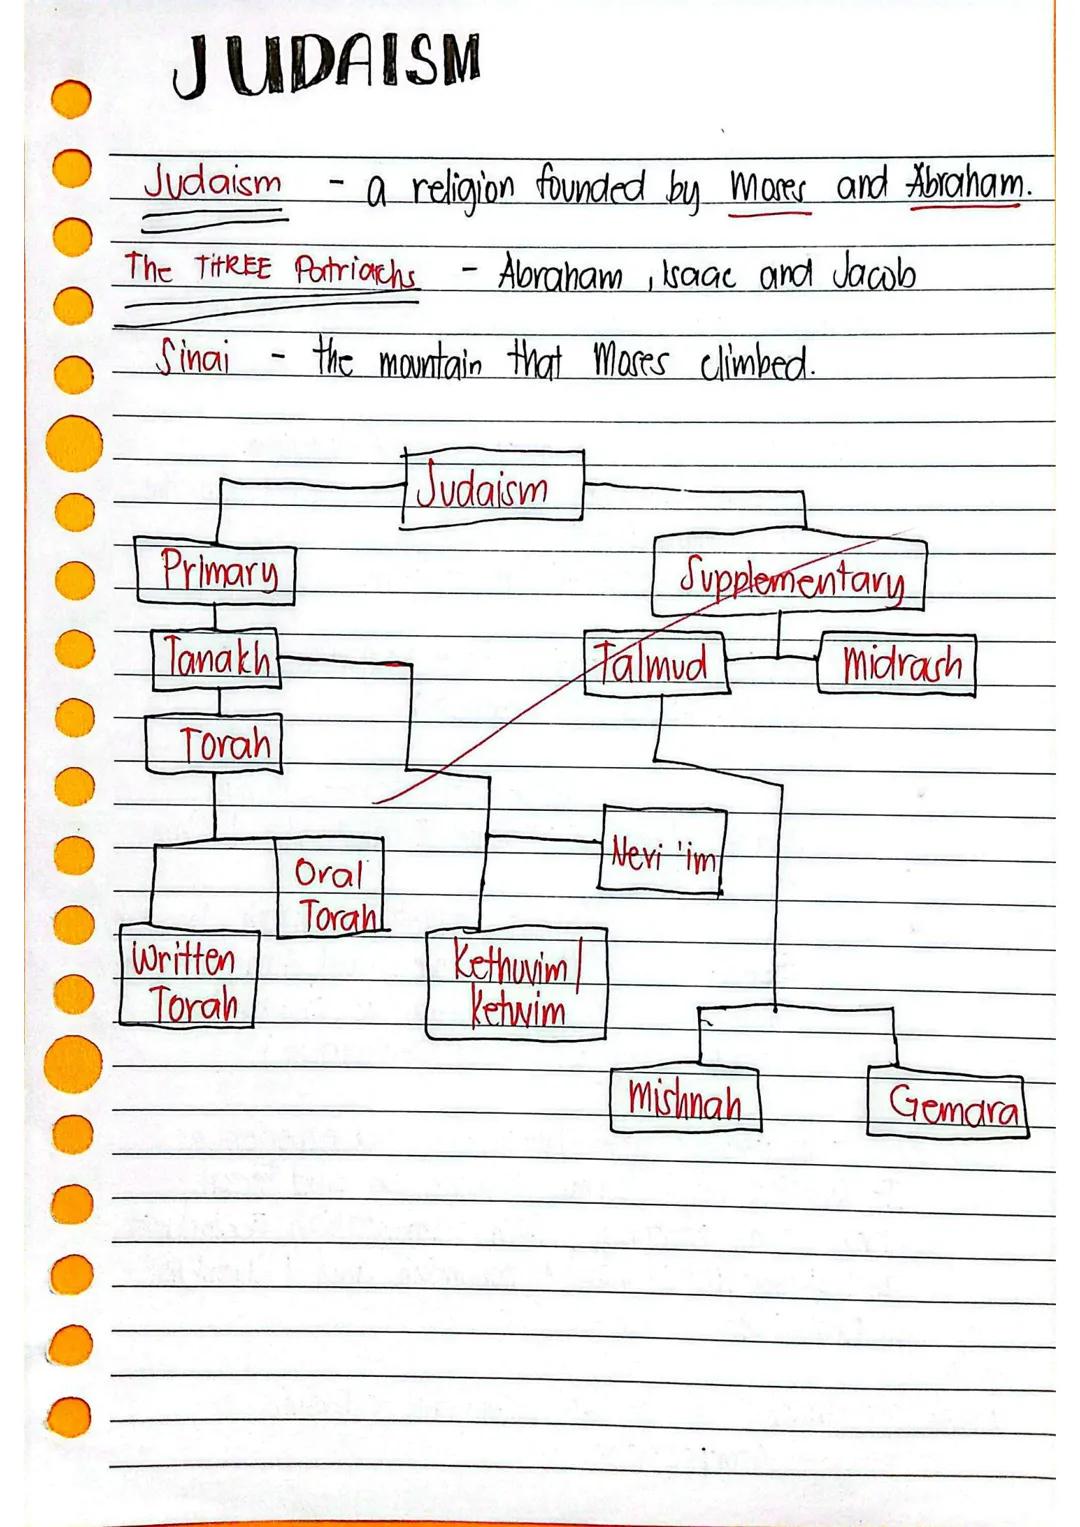 JUDAISM
Judaism - a religion founded by Moses and Abraham.
The THREE Patriarchs - Abraham, Isaac and Jacob
Sinai - the mountain that Moses climbed.
Judaism
Primary
Supplementary
Tanakh
Talmud
Midrash
Torah
Nevi'im
Oral
Torah
Written
Torah
Kethuvim/
Ketuvim
Mishnah
Gemara